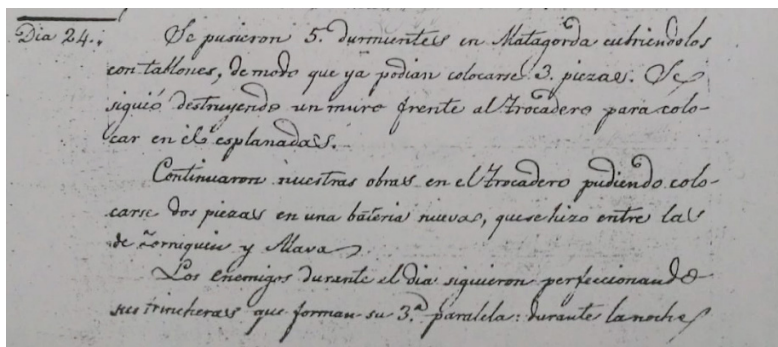 Dia 24.. Se pusieron 5. durmientes en Matagorda cubriendolos
con tablones, de modo que ya podian colocarse 3. piezas. Se
siguió destruyendo un muro frente al Trocadero para colo-
car en él esplanadas.
Continuaron nuestras obras en el Trocadero pudiendo colo-
carse dos piezas en una bateria nueva, que se hizo entre las
de y
Los enemigos durante el dia siguieron perfeccionando
sus trincheras que forman su 3.ª paralela: durante la noche